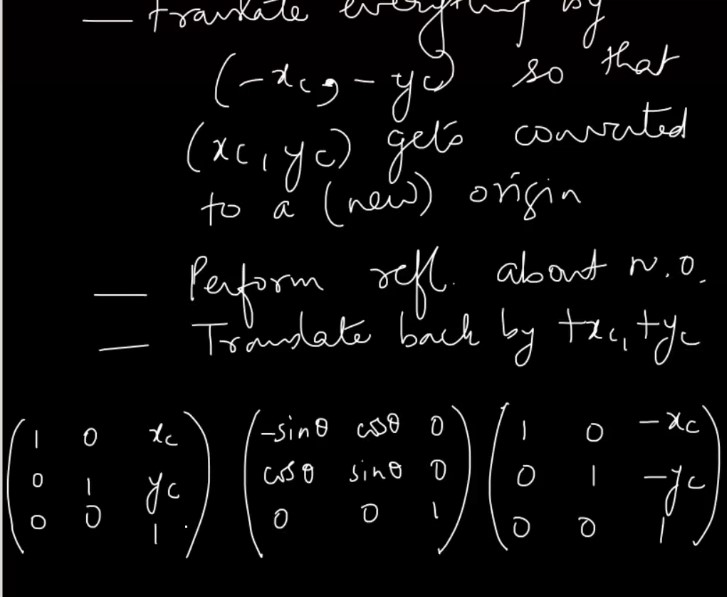 — translate everything by
(-xc, -yc) so that
(xc, yc) gets converted
to a (new) origin
— Perform refl. about N.O.
— Translate back by +xc, +yc
( 1 0 xc ) ( -sinθ cosθ 0 ) ( 1 0 -xc )
( 0 1 yc ) ( cosθ sinθ 0 ) ( 0 1 -yc )
( 0 0 1 ) ( 0 0 1 ) ( 0 0 1 )